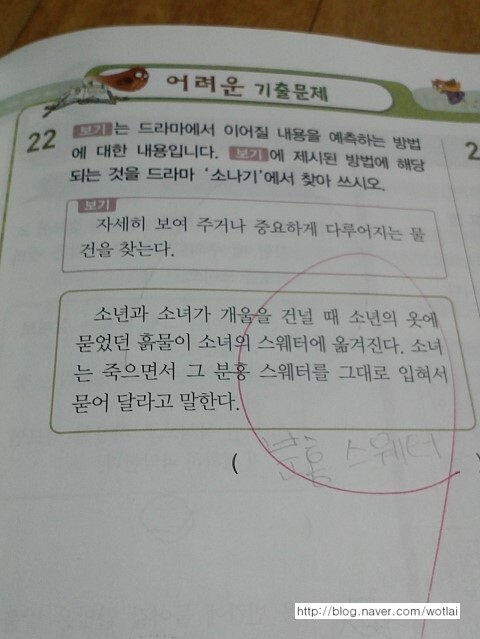 어려운 기출문제
22 보기 는 드라마에서 이어질 내용을 예측하는 방법
에 대한 내용입니다. 보기 에 제시된 방법에 해당
되는 것을 드라마 '소나기'에서 찾아 쓰시오.
보기
자세히 보여 주거나 중요하게 다루어지는 물
건을 찾는다.
소년과 소녀가 개울을 건널 때 소년의 옷에
묻었던 흙물이 소녀의 스웨터에 옮겨진다. 소녀
는 죽으면서 그 분홍 스웨터를 그대로 입혀서
묻어 달라고 말한다.
( 분홍 스웨터 )
2
http://blog.naver.com/wotlai